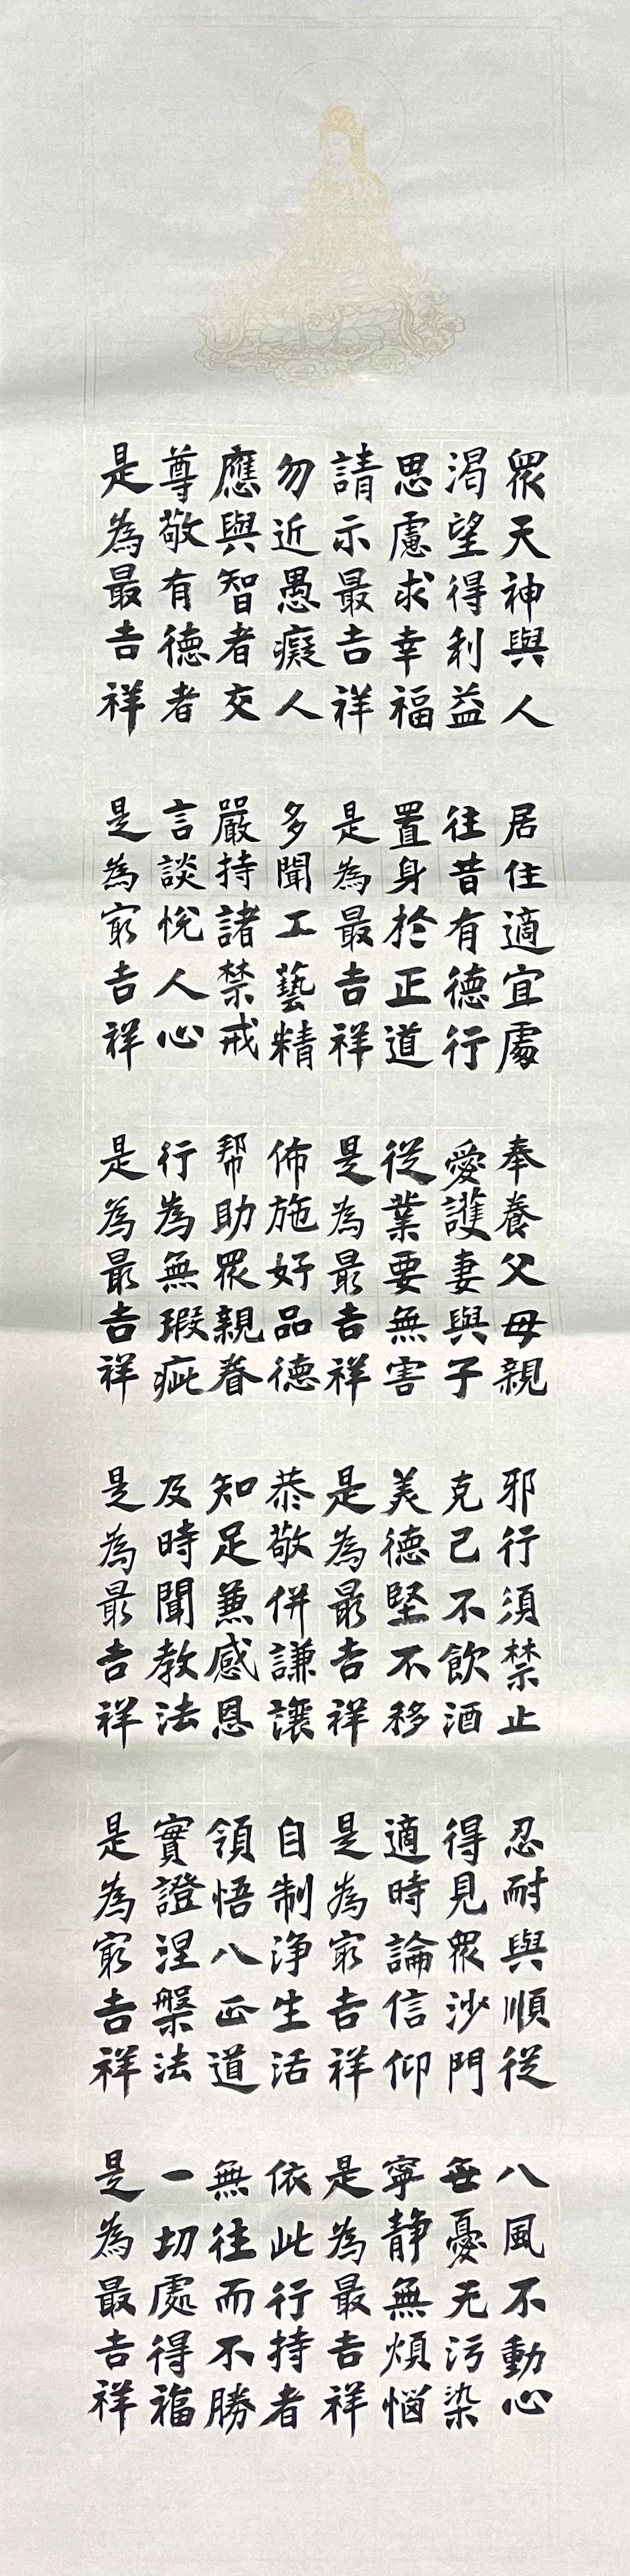 眾天神與人
渴望得利益
思慮求幸福
請示最吉祥
勿近愚癡人
應與智者交
尊敬有德者
是為最吉祥
居住適宜處
往昔有德行
置身於正道
是為最吉祥
多聞工藝精
嚴持諸禁戒
言談悅人心
是為冣吉祥
奉養父母親
愛護妻與子
從業要無害
是為最吉祥
佈施好品德
帮助眾親眷
行為無瑕疵
是為最吉祥
邪行須禁止
克己不飲酒
美德堅不移
是為最吉祥
恭敬併謙讓
知足兼感恩
及時聞教法
是為最吉祥
忍耐與順從
得見眾沙門
適時論信仰
是為冣吉祥
自制淨生活
領悟八正道
實證涅槃法
是為冣吉祥
八風不動心
無憂无污染
寧靜無煩惱
是為最吉祥
依此行持者
無往而不勝
一切處得福
是為最吉祥